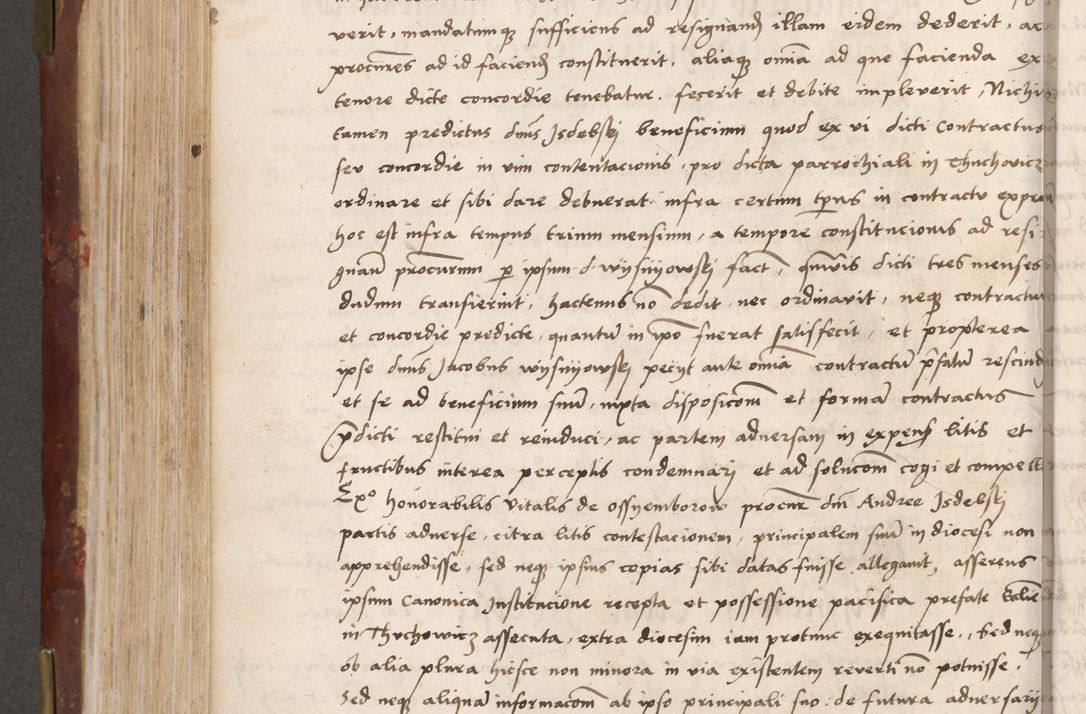 verit, mandatumq sufficiens ad resignand illam eidem dederit, ac
procures ad id faciend constituerit, aliaq omia ad que facienda ex
tenore dicte concordie tenebatur, fecerit et debite impleverit, Nichi
tamen predictus dms Jsdebskj beneficium quod ex vi dicti Contractus
seu concordie in vim contentacionis, pro dicta parrochiali in Thuchovicz
ordinare et sibi dare debuerat infra certum tpus in contractu expres
hoc est infra tempus trium mensium, a tempore constitucionis ad resi
gnan procurum p ipsum d wysnyowskj fact, quvis dicti tres menses
dudum transierint, hactenus no dedit, nec ordinavit, neq contractu
et concordie predicte, quantu in ipo fuerat satisfecit, et propterea
ipse dms Jacobus wysnyowskj pecyt ante omia contractu pfatu rescind
et se ad beneficium suu, iuxta disposicom et forma contractus
pdicti restitui et reinduci, ac partem adversam in expens litis et
fructibus interea perceptis condemnarj et ad solucom cogi et compell
Exo honorabilis Vitalis de Ossyemborow procur dm Andree Jsdebskj
partis adverse, citra litis contestacionem, principalem suu in diocesi non
apprehendisse, sed neq ipsius copias sibi datas fuisse allegavit, asserens
ipsum Canonica Jnstitucione recepta et possessione pacifica prefate Ecclie
in Thuchowicz assecuta, extra diocesim iam protunc exequitasse, Sed neq
ob alia plura hicsce non minora in via existentem reverti no potuisse.
Sed neq aliqua informacom ab ipso principali suo de futura adversarij